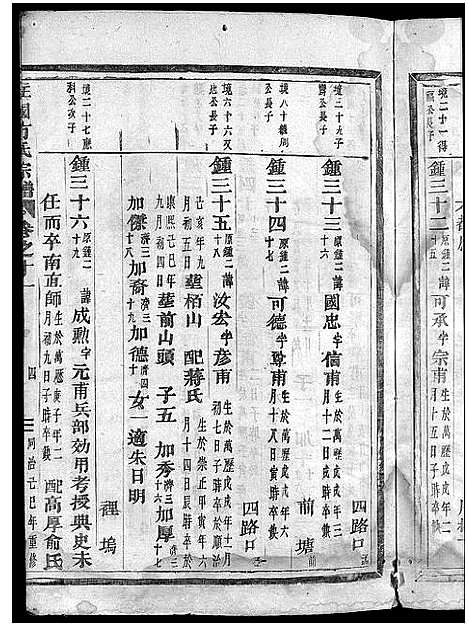 境二十一得
鍾三十二 原鍾二十五 諱可承字宗甫
月十五日子時卒
境三十九子
鍾三十三 原鍾二十六 諱國忠字信甫 生於萬歷戊戌年三月十二日戌時卒缺
四路口
境八十德周
公長子
鍾三十四 原鍾二十七 諱可德字聖甫 生於萬歷戊戌年六月十八日寅時卒缺
前塘
境六十六双
公長子
鍾三十五 原鍾二十八 諱汝宏字彥甫 生於萬歷戊戌年十一月初七日子時卒於順治
四路口
己亥年九月初五日塟栢山 配蔣氏 生於崇正甲寅年六月十四日辰時卒於
康熙己巳年九月初四日塟前山頭 子五 加秀 濟三十六 加厚 濟三十七
加傑 濟三十八 加裔 濟三十九 加德 濟四十 女一適朱日明
裡塢
境二十七應
科公次子
鍾三十六 原鍾二十九 諱成勲字元甫兵部効用考授典史未
任而卒南直師 生於萬歷庚子年二月初九日子時卒缺 配高厚俞氏
氏宗譜
卷之十一
四
同治己巳年重修